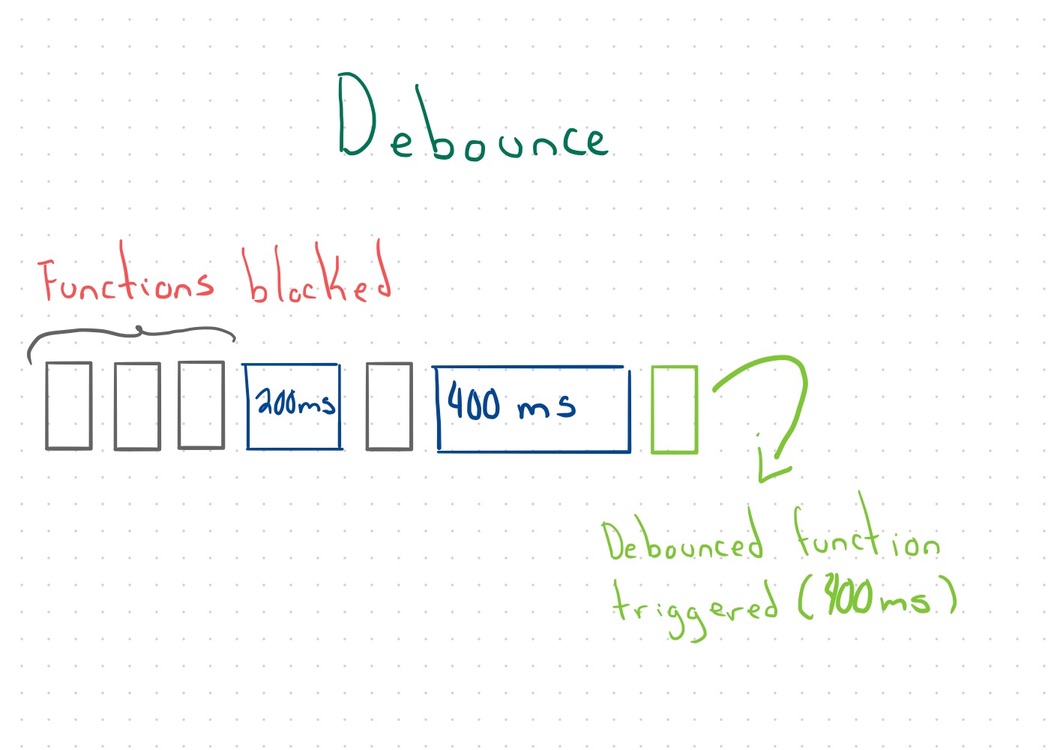 Debounce
Functions blocked
200ms
400 ms
Debounced function
triggered (400ms)